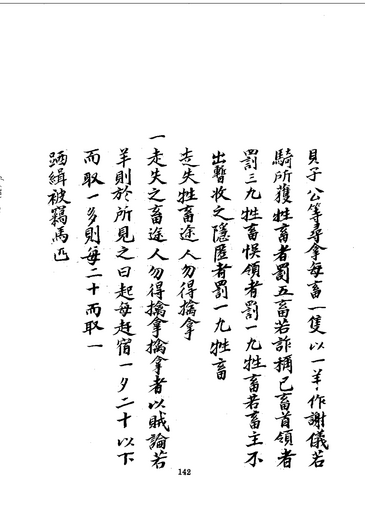 貝子公等尋拿每畜一隻以一羊作謝儀若
騎所獲牲畜者罰五畜若詐稱已畜首領者
罰三九牲畜悞領者罰一九牲畜若畜主不
出暫收之隱匿者罰一九牲畜
走失牲畜途人勿得擒拿
一走失之畜途人勿得擒拿擒拿者以賊論若
羊則於所見之日起每赶宿一夕二十以下
而取一多則每二十而取一
跴緝被竊馬匹
142